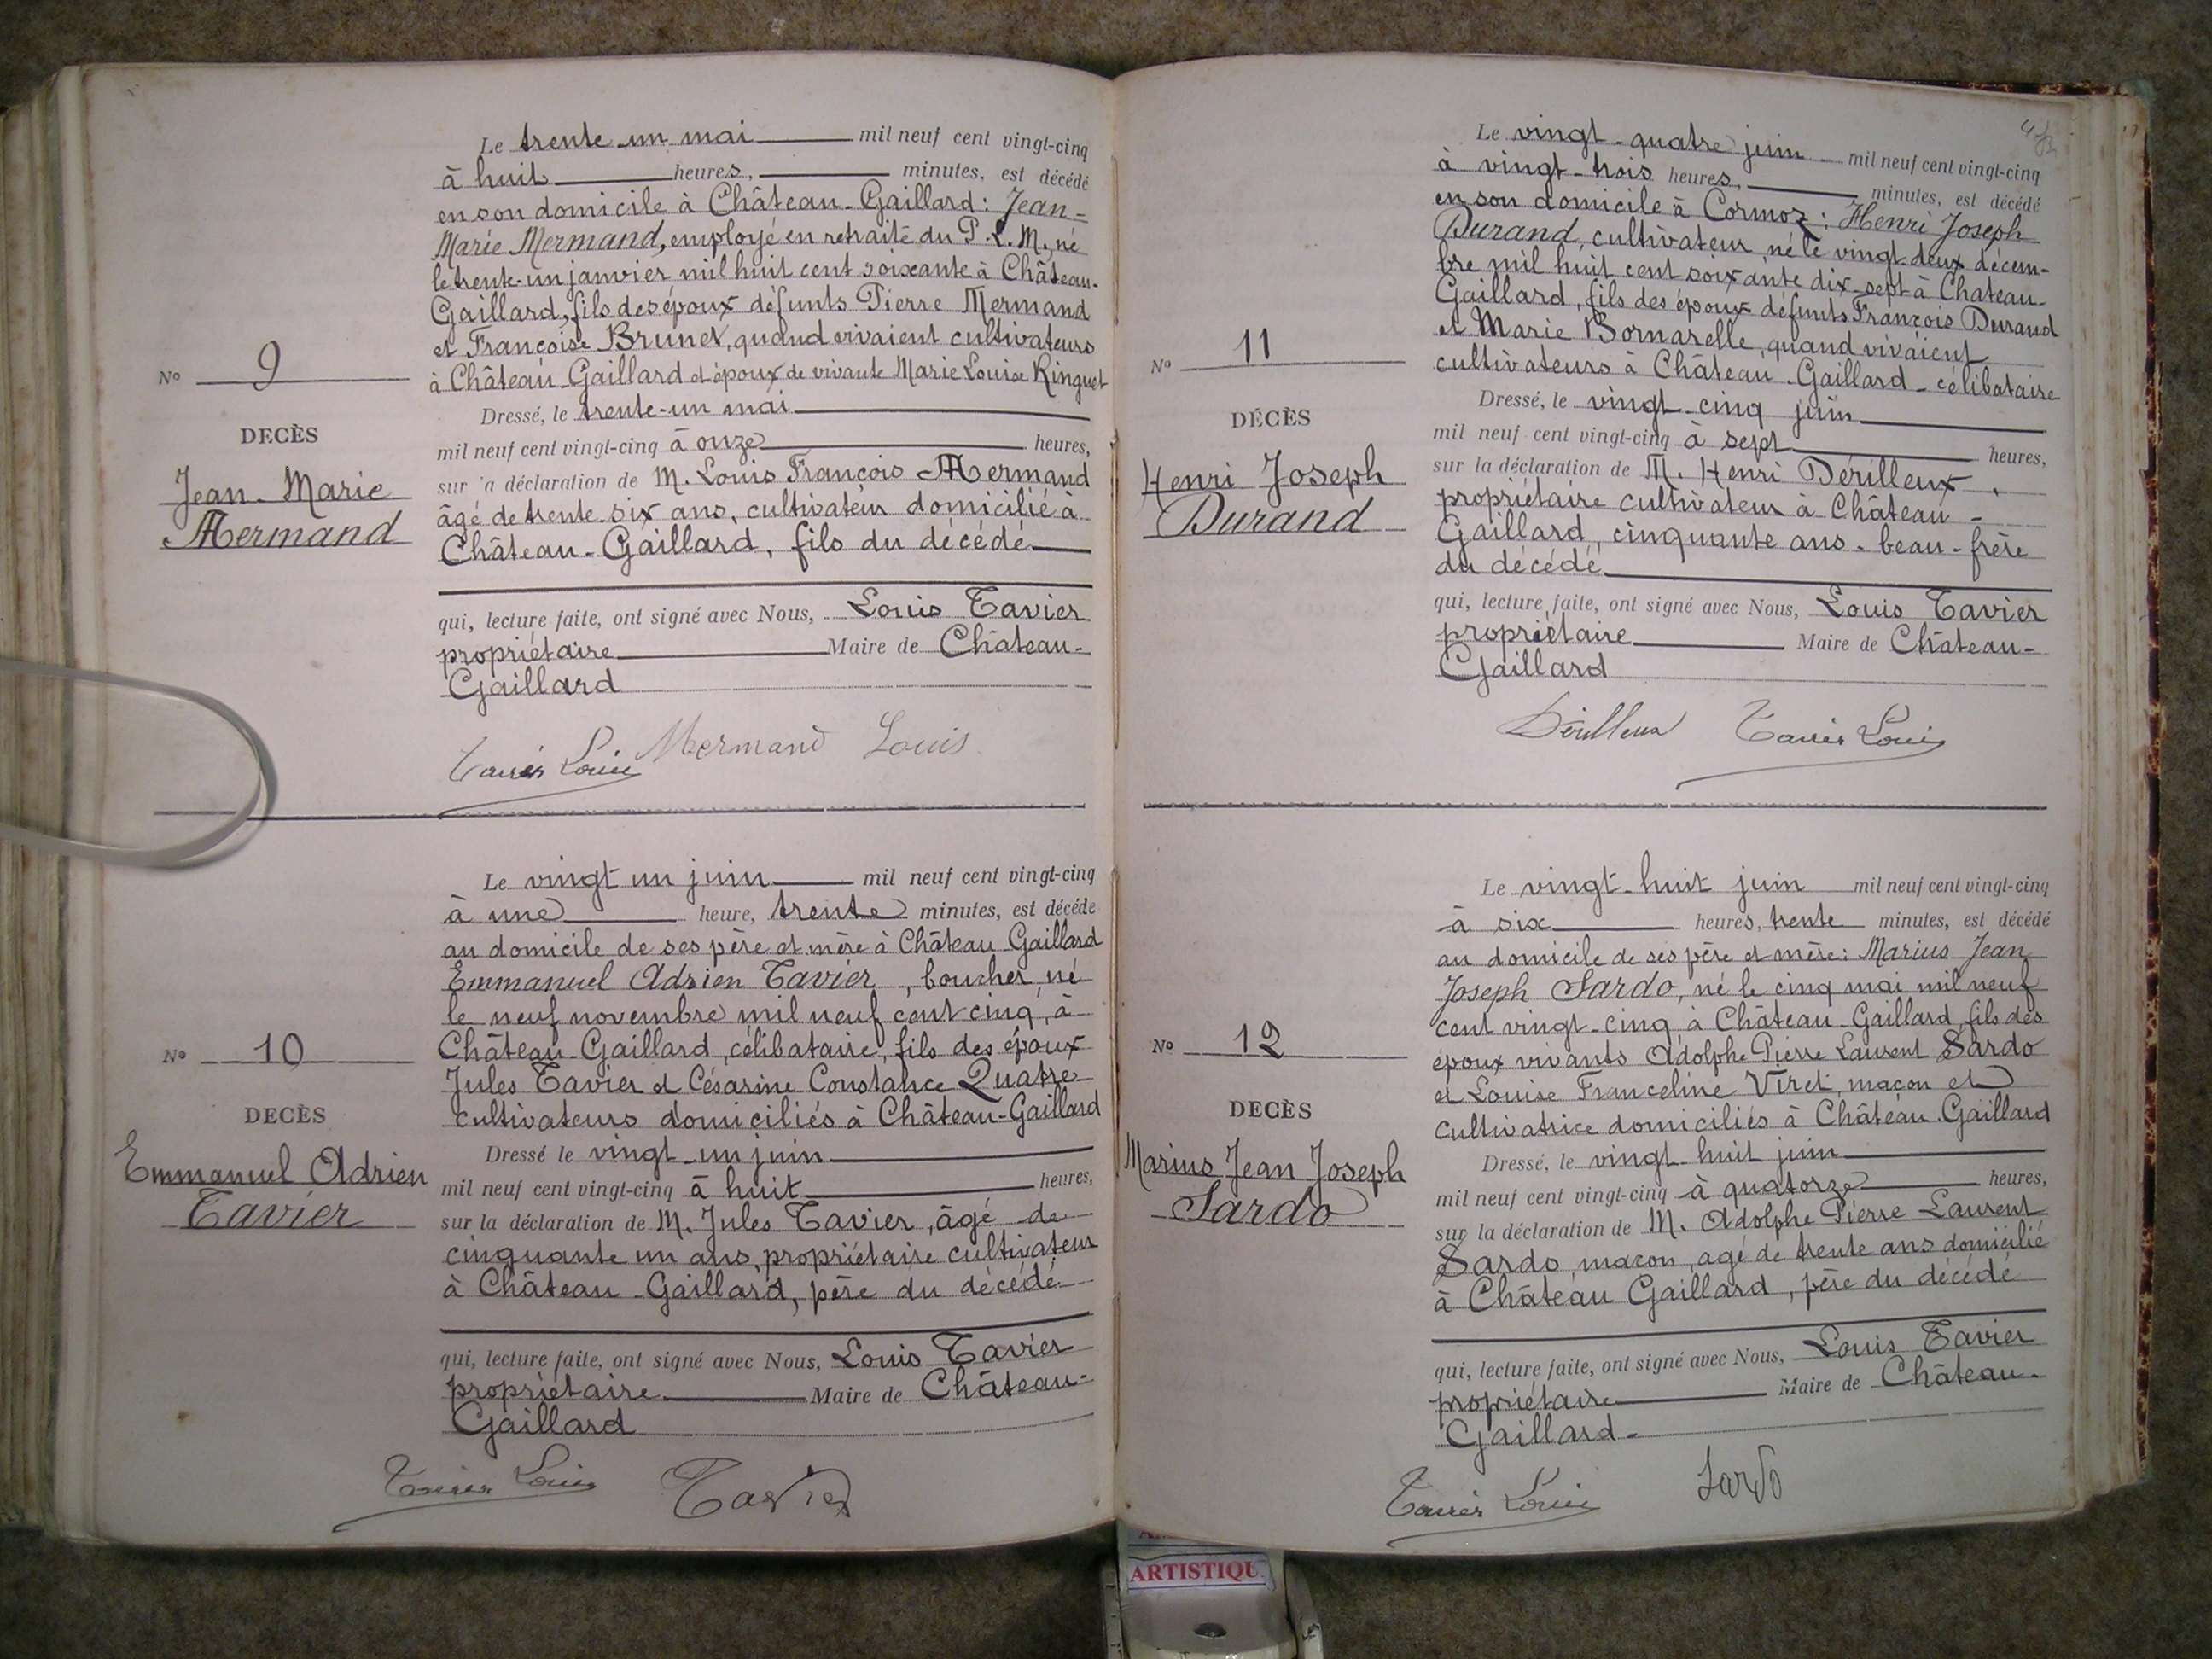 Le trente un mai mil neuf cent vingt-cinq
à huit heures, minutes, est décédé
en son domicile à Château-Gaillard: Jean-
Marie Mermand, employé en retraite du P.L.M., né
le trente-un janvier mil huit cent soixante à Château-
Gaillard, fils des époux défunts Pierre Mermand
et Françoise Brunet, quand vivaient cultivateurs
à Château-Gaillard et époux de vivante Marie Louise Ringuet
Nº 9
DECÈS
Jean-Marie
Mermand
Dressé, le trente-un mai
mil neuf cent vingt-cinq à onze heures,
sur la déclaration de M. Louis François Mermand
âgé de trente-six ans, cultivateur domicilié à
Château-Gaillard, fils du décédé
qui, lecture faite, ont signé avec Nous, Louis Tavier
propriétaire Maire de Château-
Gaillard
Tavier Louis Mermand Louis
Le vingt un juin mil neuf cent vingt-cinq
à une heure, trente minutes, est décédé
au domicile de ses père et mère à Château Gaillard
Emmanuel Adrien Tavier, boucher, né
le neuf novembre mil neuf cent cinq, à
Château-Gaillard, célibataire, fils des époux
Jules Tavier et Césarine Constance Quatre
cultivateurs domiciliés à Château-Gaillard
Nº 10
DECÈS
Emmanuel Adrien
Tavier
Dressé le vingt-un juin
mil neuf cent vingt-cinq à huit heures,
sur la déclaration de M. Jules Tavier, âgé de
cinquante un ans, propriétaire cultivateur
à Château-Gaillard, père du décédé
qui, lecture faite, ont signé avec Nous, Louis Tavier
propriétaire Maire de Château-
Gaillard
Tavier Louis Tavier
Le vingt-quatre juin mil neuf cent vingt-cinq
à vingt-trois heures, minutes, est décédé
en son domicile à Cormoz: Henri Joseph
Durand, cultivateur, né le vingt-deux décem-
bre mil huit cent soixante dix-sept à Chateau-
Gaillard, fils des époux défunts François Durand
et Marie Bornarelle, quand vivaient
cultivateurs à Château-Gaillard - célibataire
Nº 11
DÉCÈS
Henri Joseph
Durand
Dressé, le vingt-cinq juin
mil neuf cent vingt-cinq à sept heures,
sur la déclaration de M. Henri Dérilleux,
propriétaire cultivateur à Château-
Gaillard, cinquante ans - beau-frère
du décédé
qui, lecture faite, ont signé avec Nous, Louis Tavier
propriétaire Maire de Château-
Gaillard
Dérilleux Tavier Louis
Le vingt-huit juin mil neuf cent vingt-cinq
à six heures, trente minutes, est décédé
au domicile de ses père et mère: Marius Jean
Joseph Sardo, né le cinq mai mil neuf
cent vingt-cinq à Château-Gaillard, fils des
époux vivants Adolphe Pierre Laurent Sardo
et Louise Franceline Viret, maçon et
cultivatrice domiciliés à Château Gaillard
Nº 12
DECÈS
Marius Jean Joseph
Sardo
Dressé, le vingt-huit juin
mil neuf cent vingt-cinq à quatorze heures,
sur la déclaration de M. Adolphe Pierre Laurent
Sardo, maçon, agé de trente ans domicilié
à Château Gaillard, père du décédé
qui, lecture faite, ont signé avec Nous, Louis Tavier
propriétaire Maire de Château-
Gaillard-
Tavier Louis Sardo
ARTISTIQU